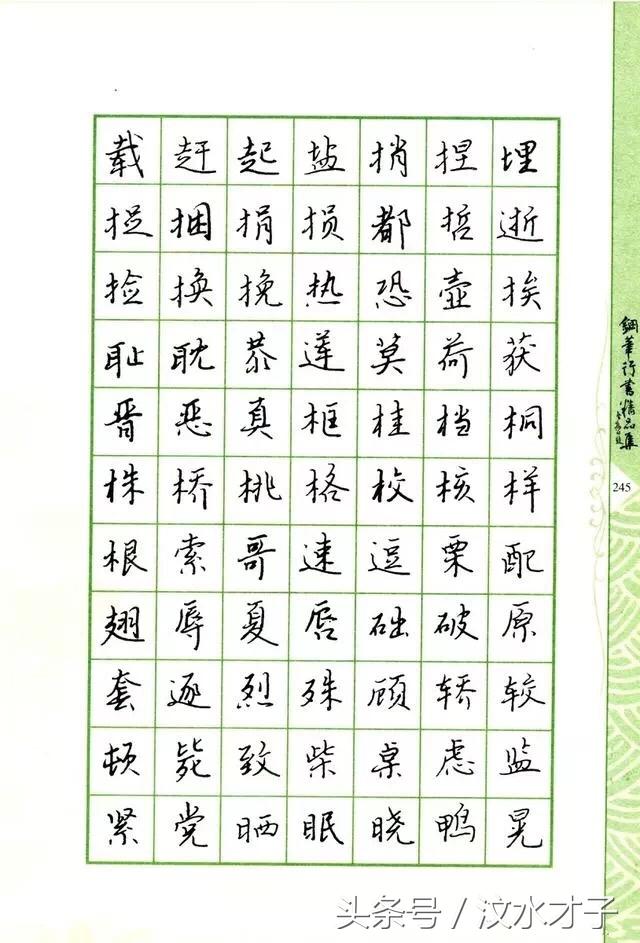 载赶起盐捎捏埋
捉捆捐损都哲逝
捡换挽热恐壶挨
耻耽恭莲莫荷获
晋恶真框桂档桐
株桥桃格校核样
根索哥速逗栗配
翅辱夏唇础破原
套逐烈殊顾轿较
顿毙致柴桌虑监
紧党晒眠晓鸭晃
钢笔行书精品集
245
头条号/汶水才子